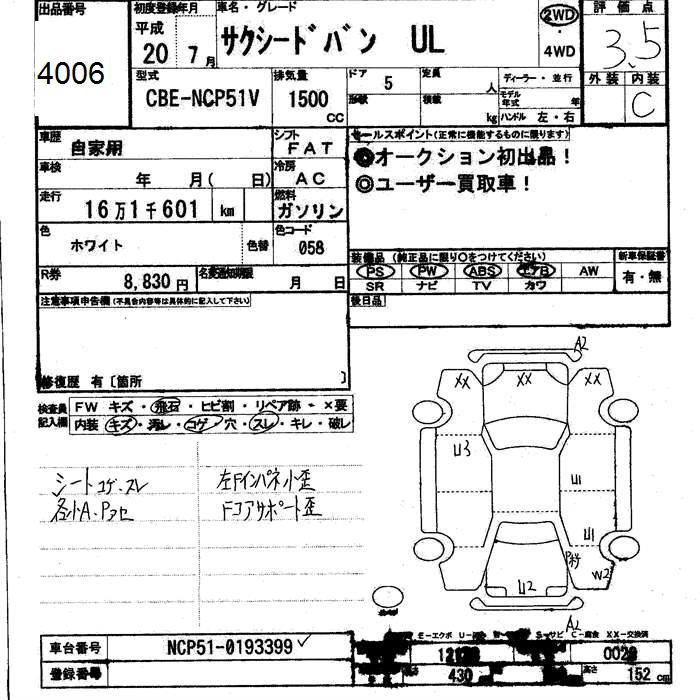 出品番号 初度登録年月 車名・グレード 評価点
4006 平成 20 7月 サクシードバン UL 2WD・4WD 3.5
型式 排気量 ドア 5 定員 人 ディーラー・並行 外装 内装
CBE-NCP51V 1500 CC 形状 積載 kg モデル年式 年 ハンドル 左・右 C
車歴 自家用 シフト FAT セールスポイント(正常に機能するものに限ります)
車検 年 月( 日) 冷房 AC ◎オークション初出品!
走行 16万1千601 km 燃料 ガソリン ◎ユーザー買取車!
色 ホワイト 色替 色コード 058
装備品 (純正品に限り○をつけてください) 新車保証書
R券 8,830円 名変通知期限 月 日 PS PW ABS エアB AW 有・無
SR ナビ TV カワ
注意事項申告欄(不具合内容等は具体的に記入して下さい) 後日品
修復歴 有〔箇所 〕
検査員記入欄 FW キズ・飛石・ヒビ割・リペア跡・×要
内装・キズ・汚レ・コゲ・穴・スレ・キレ・破レ
シートコゲ・スレ 左Fインパネ小歪
各小A・Pコセ Fコアサポート歪
A2
XX XX XX
U3
U1
U1
P跡 W2
U2
A2
E-エクボ S-サビ C-腐食 XX-交換済
車台番号 NCP51-0193399
登録番号 430 高さ 152 cm